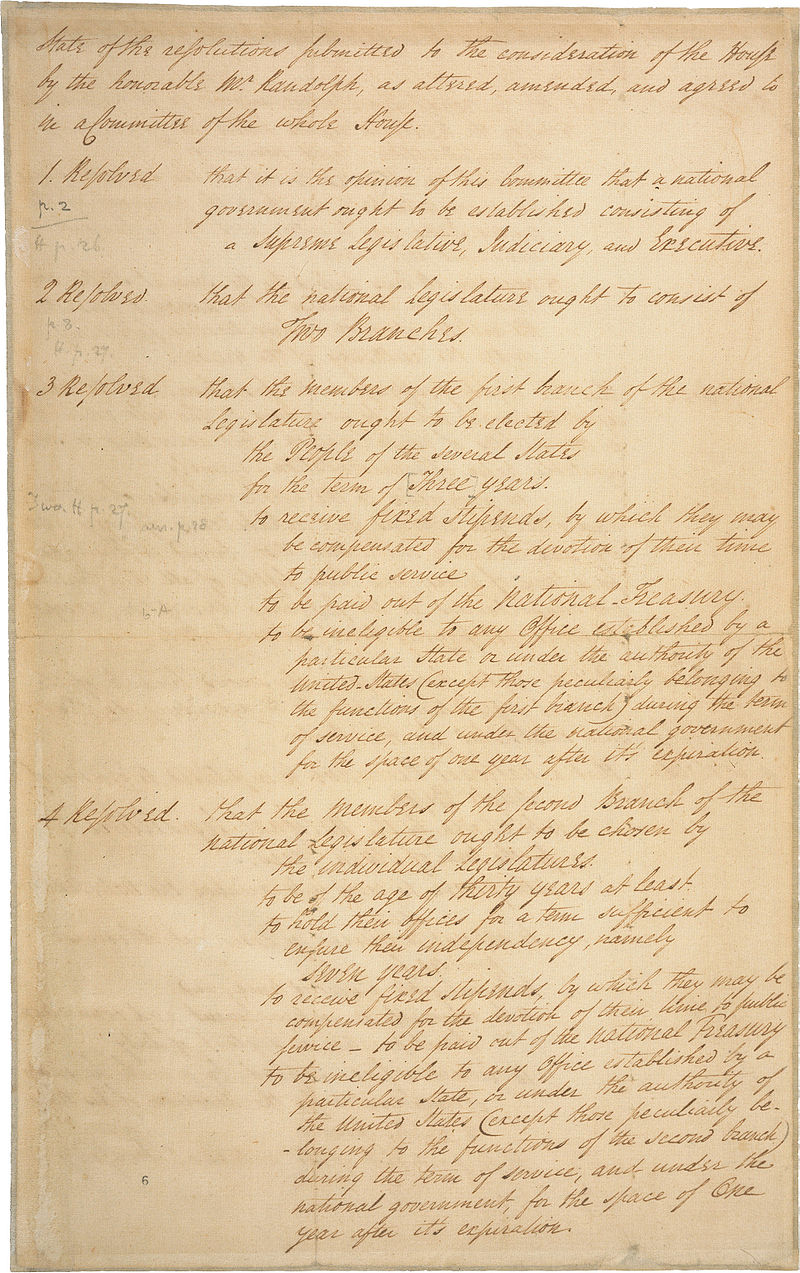 State of the resolutions submitted to the consideration of the House
by the honorable Mr Randolph, as altered, amended, and agreed to
in a Committee of the whole House.
1. Resolved that it is the opinion of this Committee that a national
p. 2
government ought to be established consisting of
H p. 26
a Supreme Legislative, Judiciary, and Executive.
2 Resolved. that the national Legislature ought to consist of
p. 8.
Two Branches.
H p. 27
3 Resolved that the members of the first branch of the national
Legislature ought to be elected by
the People of the several States
for the term of [Three] years.
H p. 27.
to receive fixed stipends, by which they may
p. 28
be compensated for the devotion of their time
to public service
to be paid out of the National-Treasury.
to be ineligible to any Office established by a
particular State or under the authority of the
United-States (except those peculiarly belonging to
the functions of the first branch) during the term
of service, and under the national government
for the space of one year after it's expiration.
4 Resolved. that the members of the second Branch of the
national Legislature ought to be chosen by
the individual Legislatures.
to be of the age of thirty years at least.
to hold their offices for a term sufficient to
ensure their independency, namely
seven years.
to receive fixed stipends, by which they may be
compensated for the devotion of their time to public
service – to be paid out of the National Treasury
to be ineligible to any Office established by a
particular State, or under the authority of
the United States (except those peculiarly be-
-longing to the functions of the second branch)
during the term of service, and under the
6
national government, for the space of One
year after it's expiration.